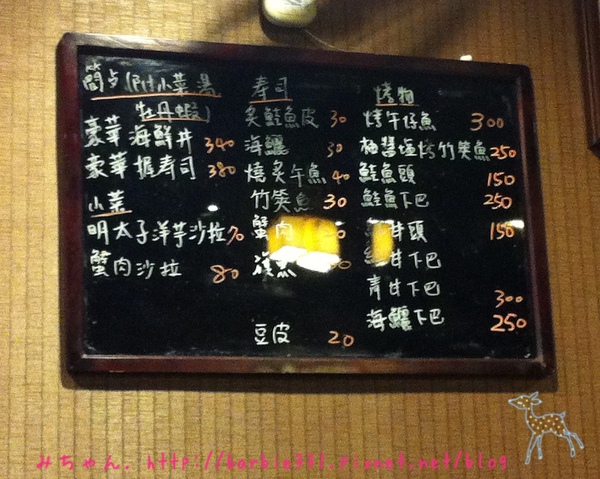 (附小菜、湯
牡丹蝦)
豪華海鮮丼 340
豪華握壽司 380
小菜
明太子洋芋沙拉 70
蟹肉沙拉 80
寿司
炙鮭魚皮 30
海鱺 30
燒炙午魚 40
竹筴魚 30
蟹肉
豆皮 20
烤物
烤午仔魚 300
柚醬塩烤竹筴魚 250
鮭魚頭 150
鮭魚下巴 250
甘頭 150
甘下巴
青甘下巴 300
海鱺下巴 250
みちゃん. http://barbie381.pixnet.net/blog